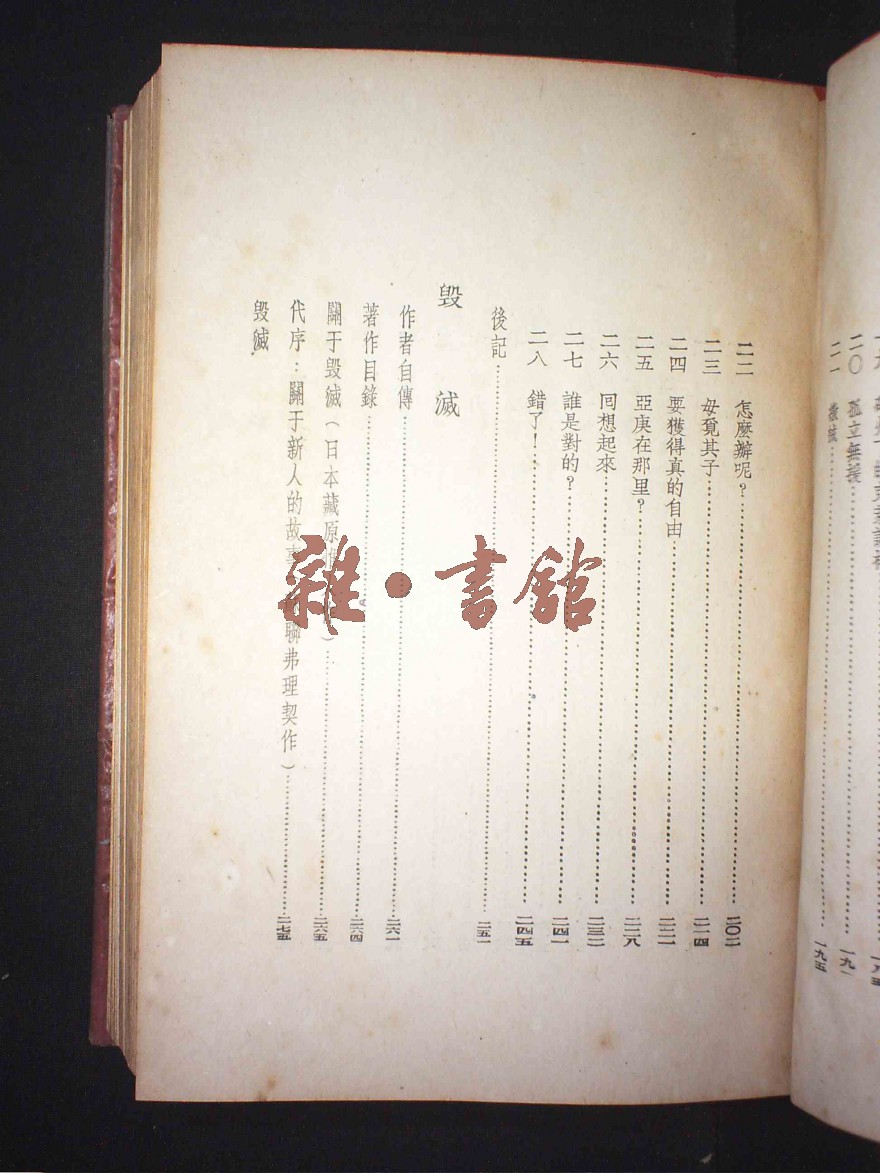 二〇 孤立無援……一九一
二一……一九五
二二 怎麼辦呢?……二〇二
二三 母覓其子……二一四
二四 要獲得真的自由……二二一
二五 亞庚在那里?……二二八
二六 回想起來……二三二
二七 誰是對的?……二四一
二八 錯了!……二四五
後記……二五一
毀滅
作者自傳……二六一
著作目錄……二六四
關于毀滅(日本藏原惟)……二六五
代序:關于新人的故事聯弗理契作)……二七五
毀滅
雜·書館